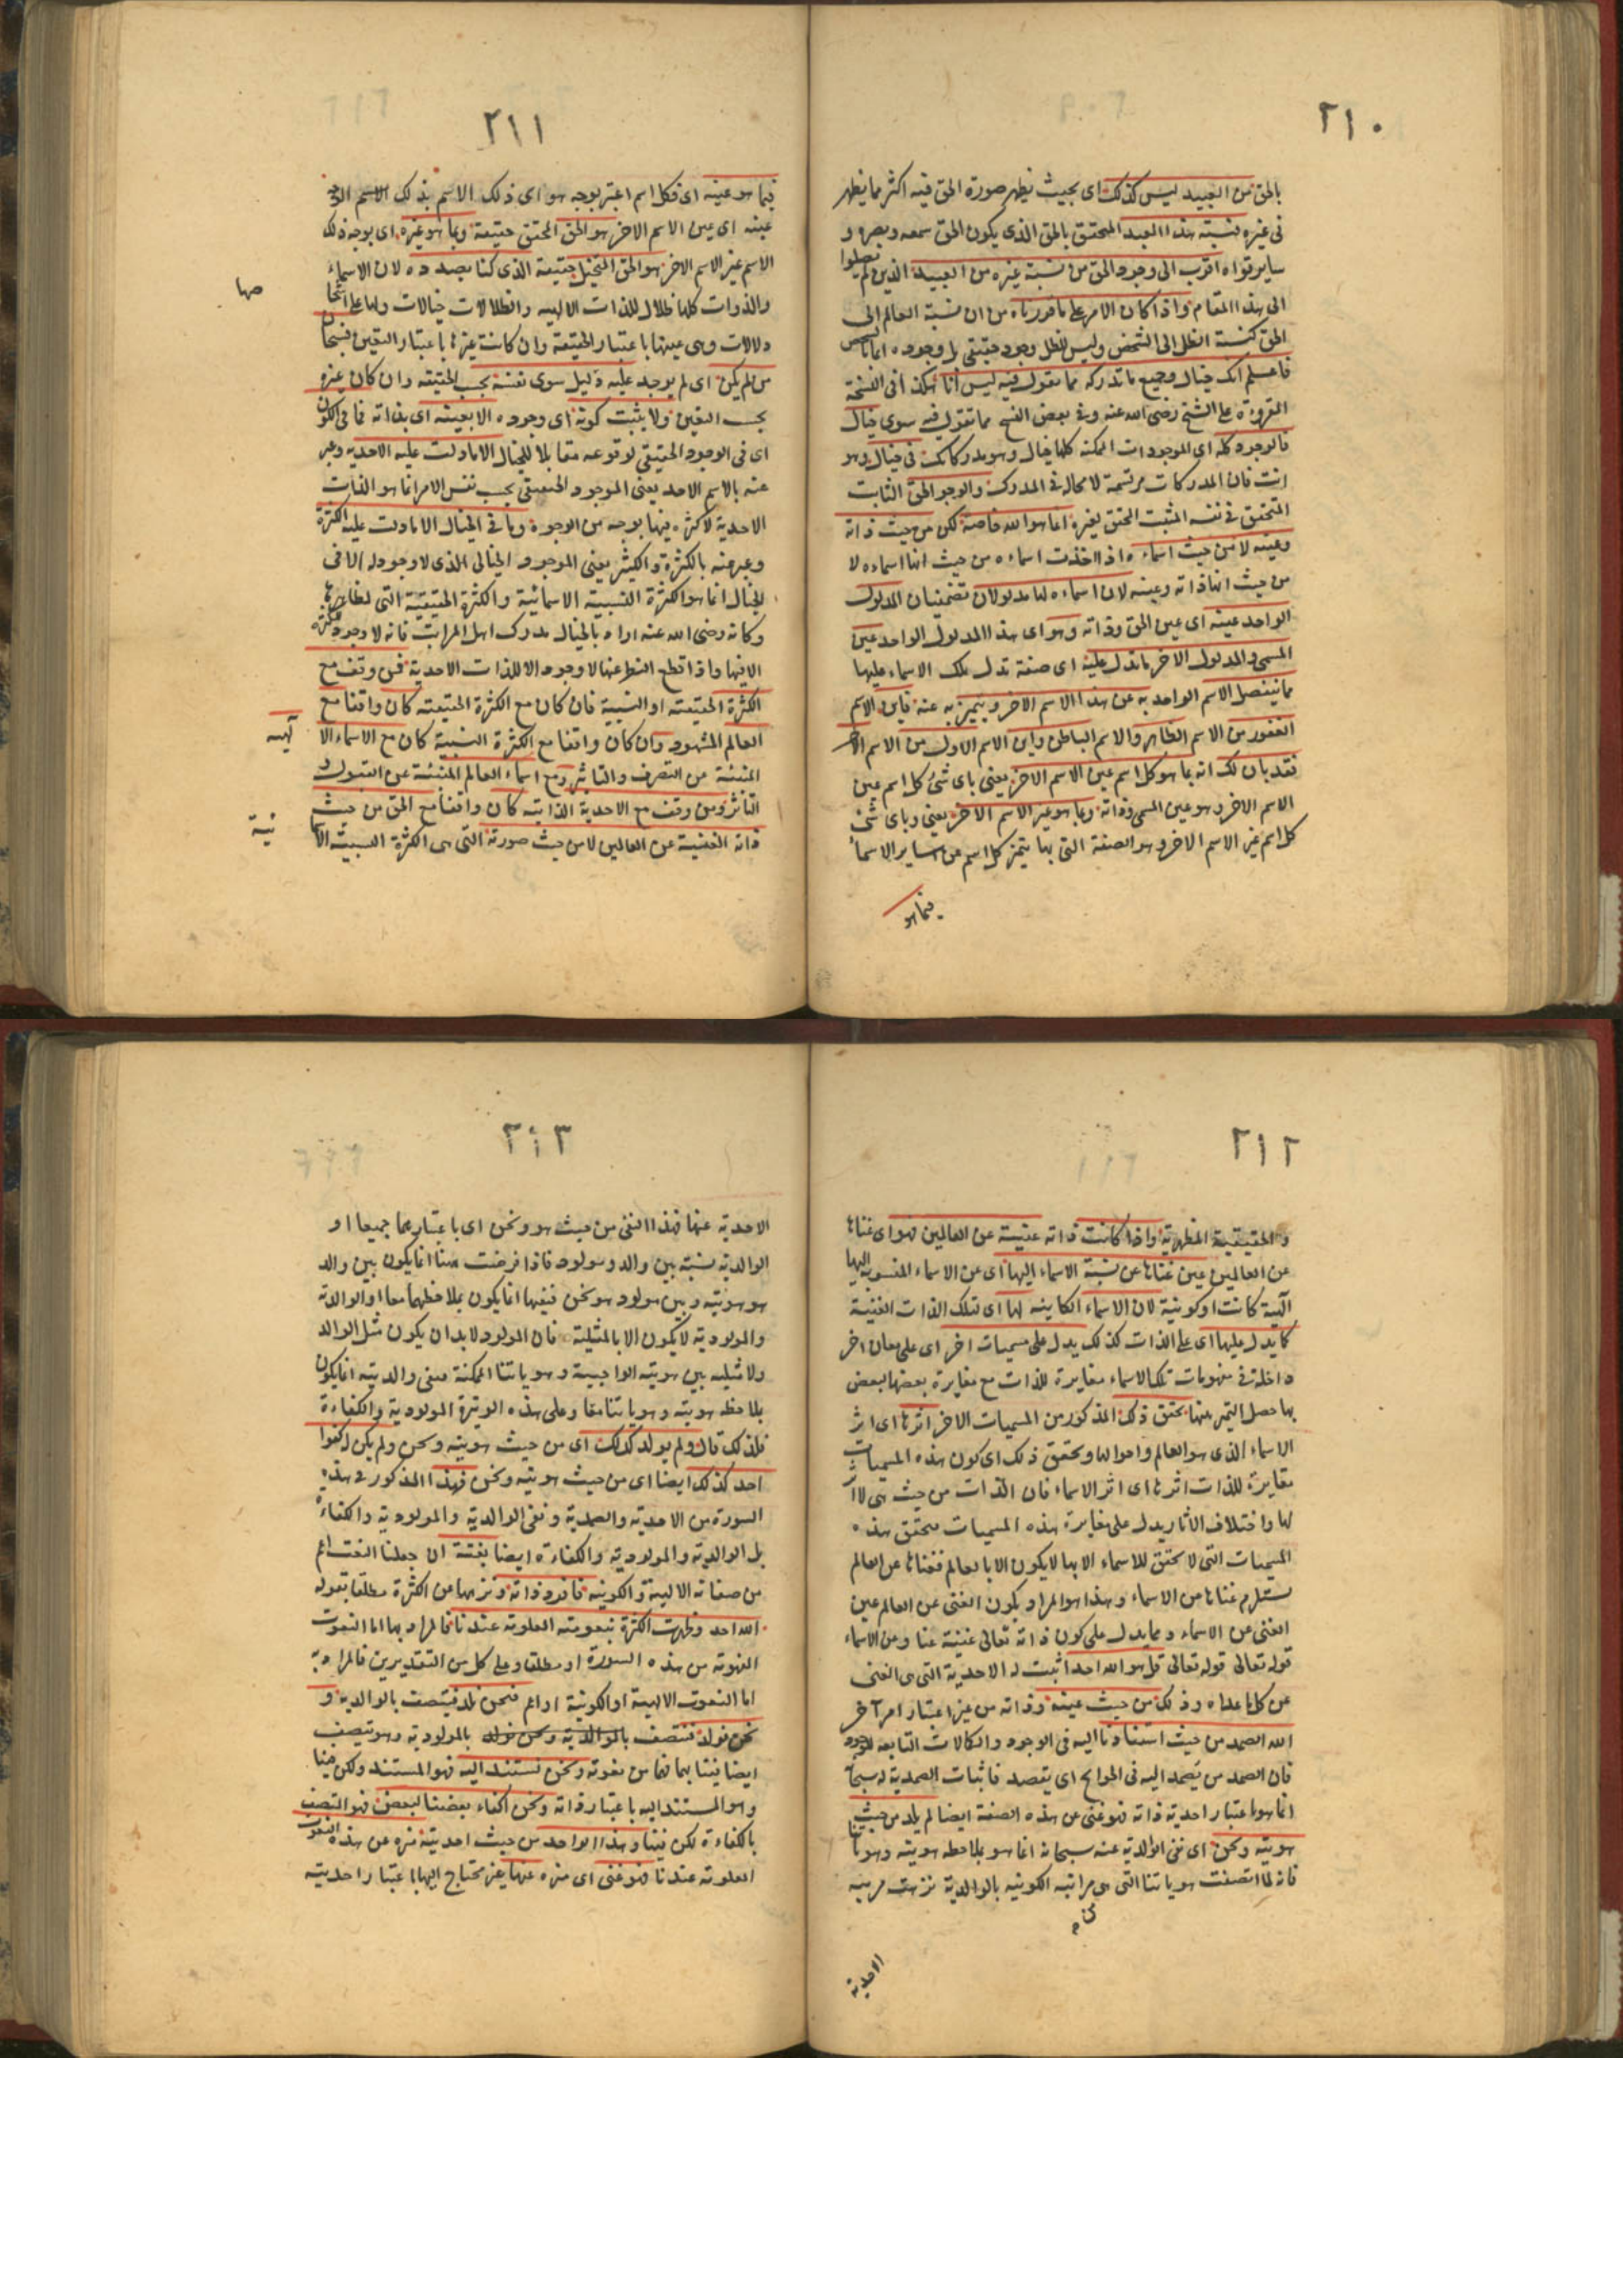 ٢١٠
بالحق من العبيد ليس كذلك اى بحيث يظهر صورة الحق فيه اكثر مما يظهر
فى غيره فنسبة هذا العبد المتحقق بالحق الذى يكون الحق سمعه وبصره و
ساير قواه اقرب الى وجود الحق من نسبة غيره من العبيد الذين لم يصلوا
الى هذا المقام واذا كان الامر على ما قررناه من ان نسبة العالم الى
الحق كنسبة الظل الى الشخص وليس للظل وجود حقيقى بل وجوده انما بالشخص
فاعلم انك خيال وجميع ما تدركه مما تقول فيه ليس انا هكذا فى النسخة
المقروءة على الشيخ رضى الله عنه وفى بعض النسخ مما تقول فيه سوى خيال
فالوجود كله اى الموجودات الممكنة كلها خيال وهو مدركاتك فى خيال وهو
انت فان المدركات مرتسمة لا محالة فى المدرك والوجود الحق الثابت
المتحقق فى نفسه المثبت المحقق لغيره انما هو الله خاصة لكن من حيث ذاته
وعينه لا من حيث اسماءه اذا اخذت اسماءه من حيث انها اسماءه لا
من حيث انها ذاته وعينه لان اسماءه لها مدلولان تضمنيان المدلول
الواحد عينه اى عين الحق وذاته وهو اى هذا المدلول الواحد عين
المسمى والمدلول الاخر ما تدل عليه اى صفة تدل تلك الاسماء عليها
مما ينفصل الاسم الواحد به عن هذا الاسم الاخر ويتميز به عنه فاين الاسم
الغفور من الاسم الظاهر والاسم الباطن واين الاسم الاول من الاسم الاخر
فقد بان لك انه بما هو كل اسم عين الاسم الاخر يعنى باى شئ كل اسم عين
الاسم الاخر وهو عين المسمى وذاته وبما هو غير الاسم الاخر يعنى وباى شئ
كل اسم غير الاسم الاخر وهو الصفة التى بها يتميز كل اسم عن ساير الاسما
فبما هو
٢١١
فبما هو عينه اى فكل اسم اعتبر بوجه هو اى ذلك الاسم بذلك الاسم الوجه
عينه اى عين الاسم الاخر هو الحق المحقق حقيقة وبما هو غيره اى بوجه ذلك
الاسم غير الاسم الاخر هو الحق المتخيل حقيقة الذى كنا بصدده لان الاسماء
والذوات كلها ظلال للذات الالهيه والظلالات خيالات ولها على
صها
دلالات وهى عينها باعتبار الحقيقة وان كانت غيرها باعتبار التعين فسبحان
من لم يكن اى لم يوجد عليه دليل سوى نفسه بحسب الحقيقه وان كان غيره
بحسب التعين ولا يثبت كونه اى وجوده الا بعينه اى بذاته فما فى الكون
اى فى الوجود الحقيقى لوقوعه مقابلا للخيال الا ما دلت عليه الاحديه وعبر
عنه بالاسم الاحد يعنى الموجود الحقيقى بحسب نفس الامر انما هو الذات
الاحدية لا كثرة فيها بوجه من الوجوه وما فى الخيال الا ما دلت عليه الكثرة
وعبر عنه بالكثرة والكثير يعنى الموجود الخيالى الذى لا وجود له الا فى
الخيال انما هو الكثرة النسبية الاسمائية والكثرة الحقيقية التى لمظاهرها
وكانه رضى الله عنه اراد بالخيال مدرك اهل المراتب فانه لا وجود
الا فيها واذا قطع النظر عنها لا وجود الا للذات الاحدية فمن وقف مع
الكثرة الحقيقيه او النسبية فان كان مع الكثرة الحقيقيه كان واقفا مع
العالم المشهود وان كان واقفا مع الكثرة النسبية كان مع الاسماء الا
لهيه
المنبئة عن التصرف والتاثير ومع اسماء العالم المنبئة عن القبول و
التأثر ومن وقف مع الاحدية الذاتيه كان واقفا مع الحق من حيث
ذاته الغنية عن العالمين لا من حيث صورته التى هى الكثرة النسبية الاسما
ئية
٢١٢
والحقيقية المظهرية واذا كانت ذاته غنية عن العالمين فهو اى غناها
عن العالمين عين غناها عن نسبة الاسماء اليها اى عن الاسماء المنسوبه اليها
آلهية كانت او كونية لان الاسماء الكاينه لها اى تلك الذات الغنية
كما يدل عليها اى على الذات كذلك يدل على مسميات اخر اى على معان اخر
داخلة فى مفهومات تلك الاسماء مغايرة للذات مع مغايرة بعضها لبعض
بها حصل التميز بينها يحقق ذلك المذكور من المسميات الاخر اثرها اى اثر
الاسماء الذى هو العالم واحوالها ويحقق ذلك اى كون هذه المسميات
مغايرة للذات اثرها اى اثر الاسماء فان الذات من حيث هى لا اثر
لها واختلاف الاثار يدل على مغايرة هذه المسميات فتحقق هذه
المسميات التى لا تحقق للاسماء الا بها لا يكون الا بالعالم فغناها عن العالم
يستلزم غناها من الاسماء وهذا هو المراد بكون الغنى عن العالم عين
الغنى عن الاسماء ومما يدل على كون ذاته تعالى غنية عنا وعن الاسماء
قوله تعالى قوله تعالى قل هو الله احد اثبت له الاحدية التى هى الغنى
عن كل ما عداه وذلك من حيث عينه وذاته من غير اعتبار امر آخر
الله الصمد من حيث استنادنا اليه فى الوجود والكمالات التابعه للوجود
فان الصمد من يصمد اليه فى الحوائج اى يقصد فاثبات الصمدية له سبحانه
انما هو باعتبار احدية ذاته فهو غنى عن هذه الصفة ايضا لم يلد من حيث
هويته ونحن اى نفى الوالدية عنه سبحانه انما هو بملاحظة هويته وهوياتنا
فانه لما اتصفت هوياتنا التى هى مراتبه الكونيه بالوالدية نزهت مرتبه
الاحدية
٢١٣
الاحدية عنها فهذا النفى من حيث هو ونحن اى باعتبارهما جميعا او
الوالدية نسبة بين والد ومولود فاذا فرضت هنا انما يكون بين والد
هو هويته وبين مولود هو نحن فنفيها انما يكون بملاحظتهما معا او الوالدية
والمولودية لا يكون الا بالمثلية فان المولود لا بد ان يكون مثل الوالد
ولا مثليه بين هويته الواجبية وهوياتنا الممكنة فنفى والديته انما يكون
بملاحظه هويته وهوياتنا معا وعلى هذه الوتيرة المولودية والكفاءة
فلذلك قال ولم يولد كذلك اى من حيث هويته ونحن ولم يكن له كفوا
احد كذلك ايضا اى من حيث هويته ونحن فهذا المذكور فى هذه
السورة من الاحدية والصمدية ونفى الوالدية والمولودية والكفاءة
بل الوالدية والمولوديه والكفاءة ايضا نعته ان جعلنا النعت اعم
من صفاته الالهية والكونيه فافرد ذاته ونزهها عن الكثرة مطلقا بقوله
الله احد وظهرت الكثرة بنعوته المعلومة عندنا فالمراد بها اما النعوت
المفهومة من هذه السورة او مطلقا وعلى كل من التقديرين فالمراد بها
اما النعوت الالهية او الكونية او اعم فنحن نلد فنتصف بالوالدية و
نحن نولد فنتصف بالوالدية ونحن نولد بالمولودية وهو يتصف
ايضا فينا بهما فهما من نعوته ونحن نستند اليه فهو المستند ولكن فينا
وهو المستند اليه باعتبار ذاته ونحن اكفاء بعضنا لبعض فهو المتصف
بالكفاءة لكن فينا وهذا الواحد من حيث احديته منزه عن هذه النعوت
المعلومة عندنا فهو غنى اى منزه عنها غير محتاج اليها باعتبار احديته